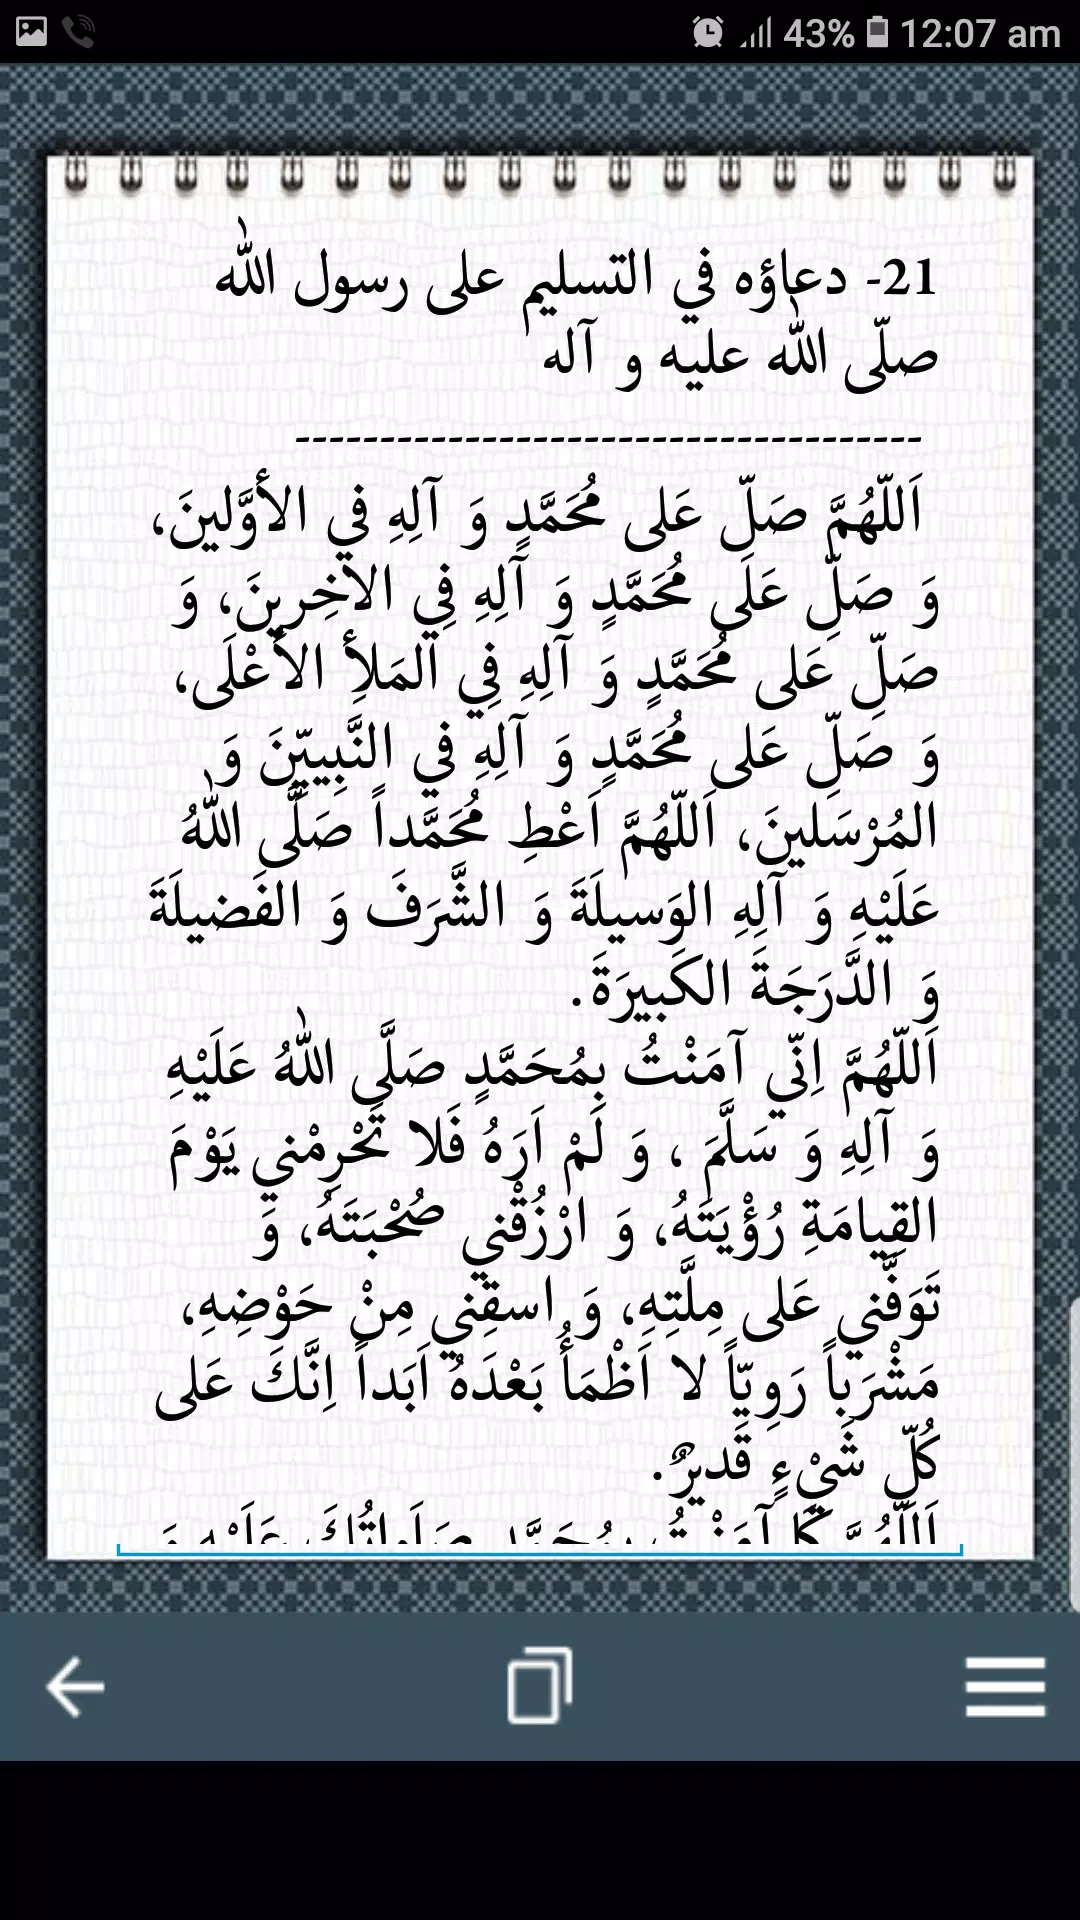 43% 12:07 am
21- دعاؤه في التسليم على رسول الله
صلّى الله عليه و آله
-------------------------------------
اَللّهُمَّ صَلّ عَلى مُحَمَّدٍ وَ آلِهِ في الأوَّلينَ،
وَ صَلِّ عَلَى مُحَمَّدٍ وَ آلِهِ فِي الآخِرينَ، وَ
صَلِّ عَلى مُحَمَّدٍ وَ آلِهِ فِي المَلأِ الأَعْلَى،
وَ صَلِّ عَلى مُحَمَّدٍ وَ آلِهِ في النَّبِييّنَ وَ
المُرْسَلينَ، اَللّهُمَّ اَعْطِ مُحَمَّداً صَلَّى اللهُ
عَلَيْهِ وَ آلِهِ الوَسيلَةَ وَ الشَّرَفَ وَ الفَضيلَةَ
وَ الدَّرَجَةَ الكَبيرَةَ.
اَللّهُمَّ اِنّي آمَنْتُ بِمُحَمَّدٍ صَلَّى اللهُ عَلَيْهِ
وَ آلِهِ وَ سَلَّمَ ، وَ لَمْ اَرَهُ فَلا تَحْرِمْني يَوْمَ
القِيامَةِ رُؤْيَتَهُ، وَ ارْزُقْني صُحْبَتَهُ، وَ
تَوَفَّني عَلى مِلَّتِهِ، وَ اسقِني مِنْ حَوْضِهِ،
مَشْرَباً رَوِيّاً لا اَظْمَأُ بَعْدَهُ اَبَداً اِنَّكَ عَلى
كُلّ شَيْءٍ قَديرٌ.
اَللّهُمَّ كَما آمَنْتُ بِمُحَمَّدٍ صَلَواتُكَ عَلَيْهِ وَ